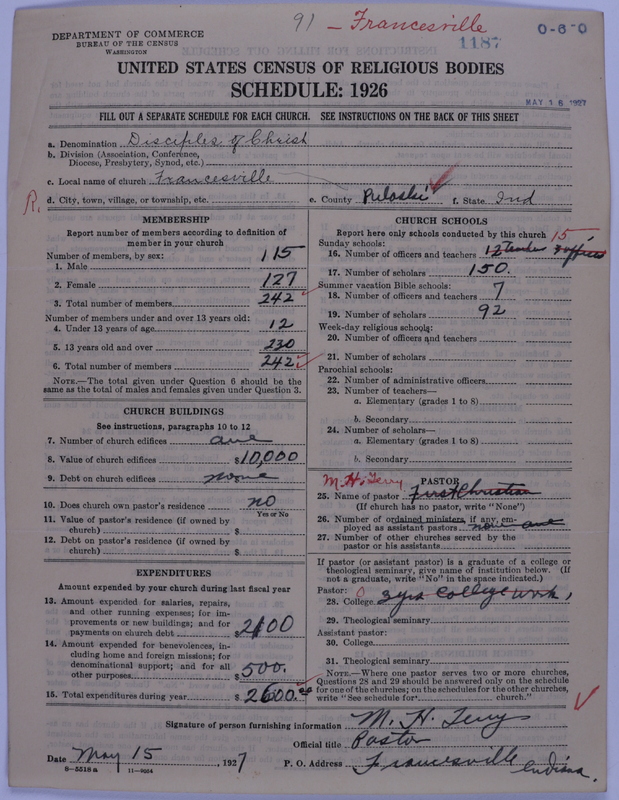 91 - Francesville
DEPARTMENT OF COMMERCE
BUREAU OF THE CENSUS
WASHINGTON
1187
0-6-0
UNITED STATES CENSUS OF RELIGIOUS BODIES
SCHEDULE: 1926
MAY 16 1927
FILL OUT A SEPARATE SCHEDULE FOR EACH CHURCH. SEE INSTRUCTIONS ON THE BACK OF THIS SHEET
a. Denomination Disciples of Christ
b. Division (Association, Conference, Diocese, Presbytery, Synod, etc.)
c. Local name of church Francesville
R. d. City, town, village, or township, etc. e. County Pulaski f. State Ind
MEMBERSHIP
Report number of members according to definition of member in your church
Number of members, by sex:
1. Male 115
2. Female 127
3. Total number of members 242
Number of members under and over 13 years old:
4. Under 13 years of age 12
5. 13 years old and over 230
6. Total number of members 242
NOTE.—The total given under Question 6 should be the same as the total of males and females given under Question 3.
CHURCH BUILDINGS
See instructions, paragraphs 10 to 12
7. Number of church edifices one
8. Value of church edifices $10,000
9. Debt on church edifices none
10. Does church own pastor's residence no
Yes or No
11. Value of pastor's residence (if owned by church) $
12. Debt on pastor's residence (if owned by church) $
EXPENDITURES
Amount expended by your church during last fiscal year
13. Amount expended for salaries, repairs, and other running expenses; for improvements or new buildings; and for payments on church debt $2100
14. Amount expended for benevolences, including home and foreign missions; for denominational support; and for all other purposes $500.
15. Total expenditures during year $2600.00
CHURCH SCHOOLS
Report here only schools conducted by this church
Sunday schools: 15
16. Number of officers and teachers 12 teacher 3 officers
17. Number of scholars 150.
Summer vacation Bible schools:
18. Number of officers and teachers 7
19. Number of scholars 92
Week-day religious schools:
20. Number of officers and teachers
21. Number of scholars
Parochial schools:
22. Number of administrative officers
23. Number of teachers—
a. Elementary (grades 1 to 8)
b. Secondary
24. Number of scholars—
a. Elementary (grades 1 to 8)
b. Secondary
PASTOR
M. H. Terry
25. Name of pastor First Christian
(If church has no pastor, write "None")
26. Number of ordained ministers, if any, employed as assistant pastors none one
27. Number of other churches served by the pastor or his assistants
If pastor (or assistant pastor) is a graduate of a college or theological seminary, give name of institution below. (If not a graduate, write "No" in the space indicated.)
Pastor: 0
28. College 3 yrs College work,
29. Theological seminary
Assistant pastor:
30. College
31. Theological seminary
NOTE.—Where one pastor serves two or more churches, Questions 28 and 29 should be answered only on the schedule for one of the churches; on the schedules for the other churches, write "See schedule for church."
Signature of person furnishing information M. H. Terry
Official title Pastor
Date May 15, 1927 P. O. Address Francesville Indiana.
8-5518a 11-9324